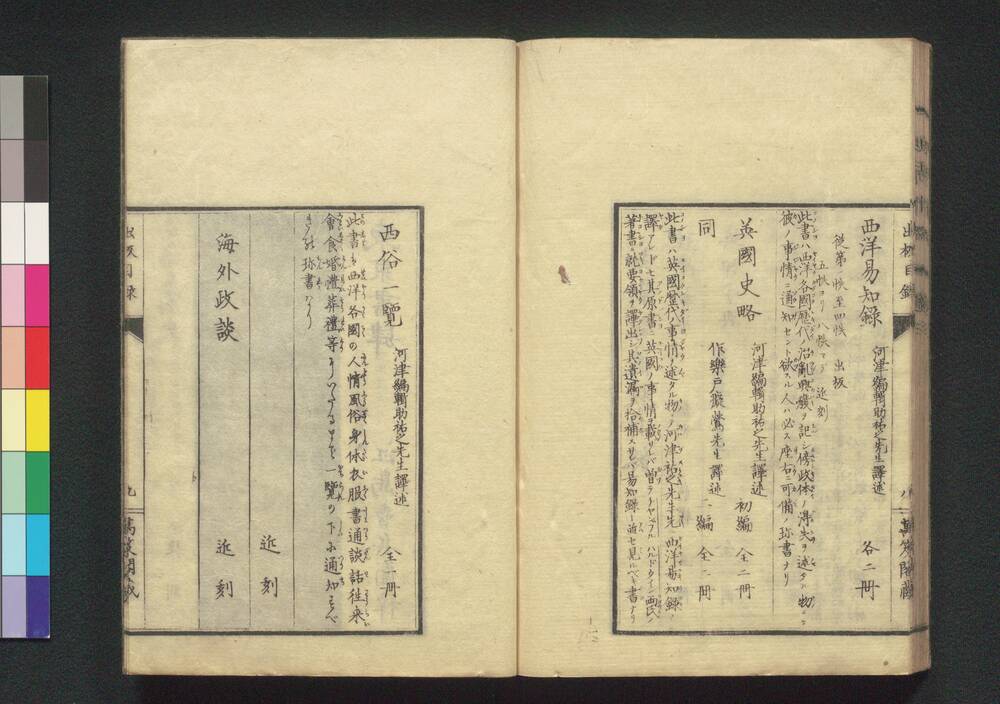 西洋易知録 河津編輯助祐之先生譯述 各二冊
從第一帙至四帙 出板
五帙ヨリ八帙マデ 近刻
此書ハ西洋各國歴代ノ治亂興癈ヲ記シ傍政体ノ得失ヲ述タル物ニテ
彼ノ事情ニ通知セント欲スル人ハ必ス座右ニ可備ノ珍書ナリ
英國史略 河津編輯助祐之先生譯述 初編 全二冊
同 作樂戸癡鶯先生譯述 二編 全二冊
此書ハ英國歴代ノ事情ヲ述タル物ノ河津祐之先生先ニ西洋易知録ノ
譯アレドモ其原書ニ英國ノ事情ヲ載
著書ニ就要領ヲ譯出シ其遺漏ヲ拾補スサレバ易知録ト並セ見ルベキ書ナリ
出板目録 八 萬笈閣藏
西俗一覽 河津編輯助祐之先生譯述 全二冊
此書ハ西洋各國の人情風俗身体衣服書通談話往来
會食婚禮葬禮等にいたるまで一覽の下に通知すべ
き珍書なり
近刻
海外政談 近刻
出板目録 九 萬笈閣藏